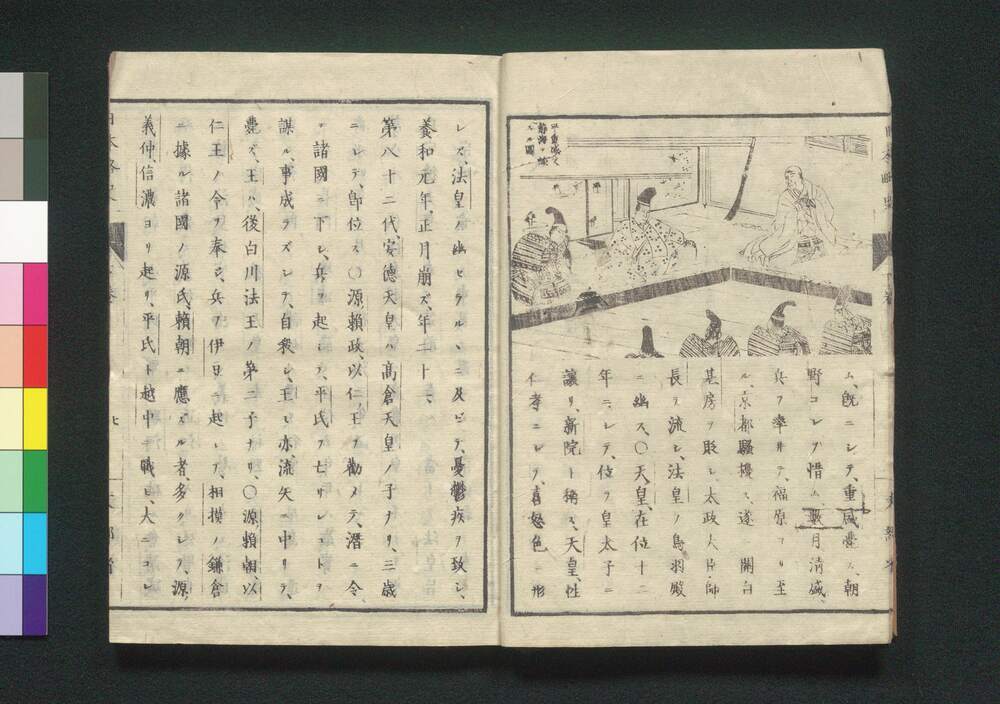 平重盛父
静海ヲ諫
ムル圖
ム、既ニシテ、重盛薨ス、朝
野コレヲ惜ム、數月清盛、
兵ヲ率ヰテ、福原ヨリ至
ル、京都騷擾ス、遂ニ關白
基房ヲ貶シ、太政大臣師
長ヲ流シ、法皇ヲ鳥羽殿
ニ幽ス、〇天皇、在位十二
年ニシテ、位ヲ皇太子ニ
讓リ、新院ト稱ス、天皇、性
仁孝ニシテ、喜怒色ニ形
レズ、法皇ノ幽セラルヽニ及ビテ、憂鬱疾ヲ致シ、
養和元年、正月崩ズ、年二十一、
第八十二代安德天皇ハ高倉天皇ノ子ナリ、三歳
ニシテ、卽位ス〇源賴政、以仁王ヲ勸メテ、潛ニ令
ヲ諸國ニ下シ、兵ヲ起シテ、平氏ヲ亡サンコトヲ
謀ル、事成ラズシテ、自殺シ、王モ亦流矢ニ中リテ、
薨ズ、王ハ、後白川法王ノ第二子ナリ、〇源賴朝、以
仁王ノ令ヲ奉ジ、兵ヲ伊豆ニ起シテ、相摸ノ鎌倉
ニ據ル、諸國ノ源氏、賴朝ニ應ズル者、多クシテ、源
義仲信濃ヨリ起リ、平氏ト越中ニ戰ヒ、大ニコレ
七